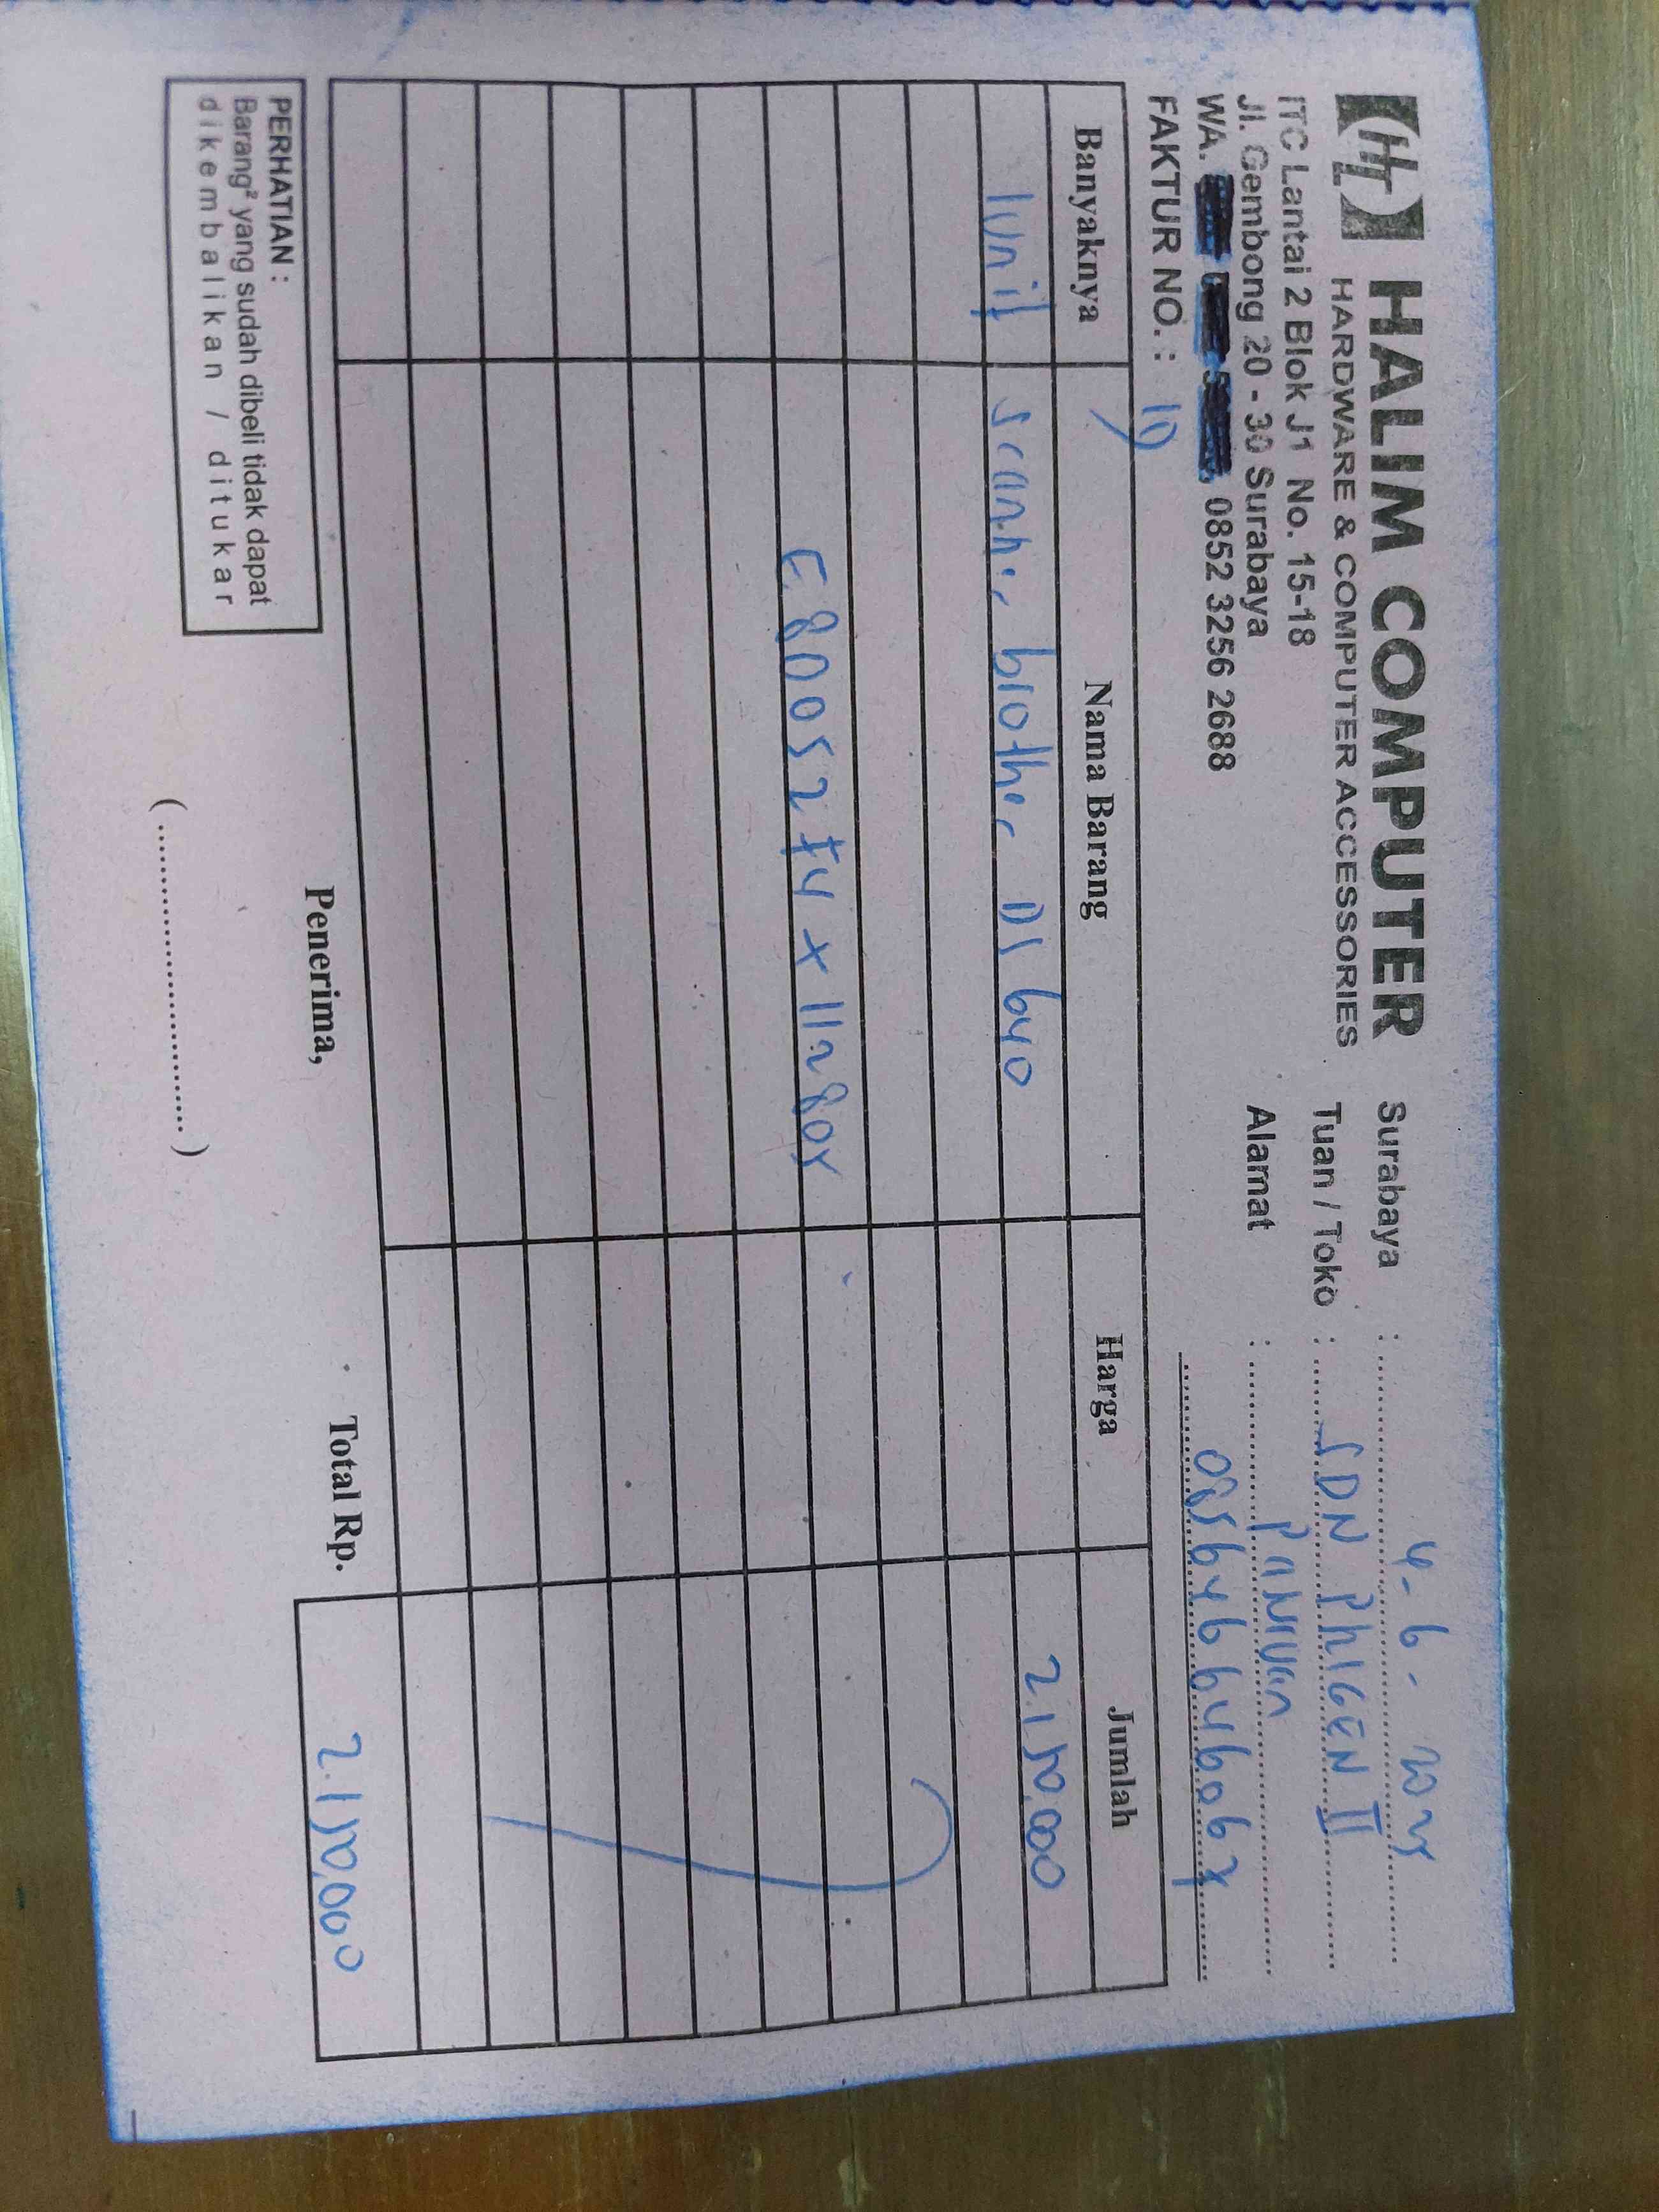 HALIM COMPUTER
HARDWARE & COMPUTER ACCESSORIES
ITC Lantai 2 Blok J1 No. 15-18
Jl. Gembong 20 - 30 Surabaya
WA. 0852 3256 2688
FAKTUR NO. : 19
Surabaya : 4-6-2024
Tuan / Toko : SDN PhIGEN II
Alamat :
Banyaknya Nama Barang Harga Jumlah
1 Unit Scanner brother DS 640 2.150.000
PERHATIAN :
Barang² yang sudah dibeli tidak dapat
dikembalikan / ditukar
Penerima,
(....................)
Total Rp. 2.150.000